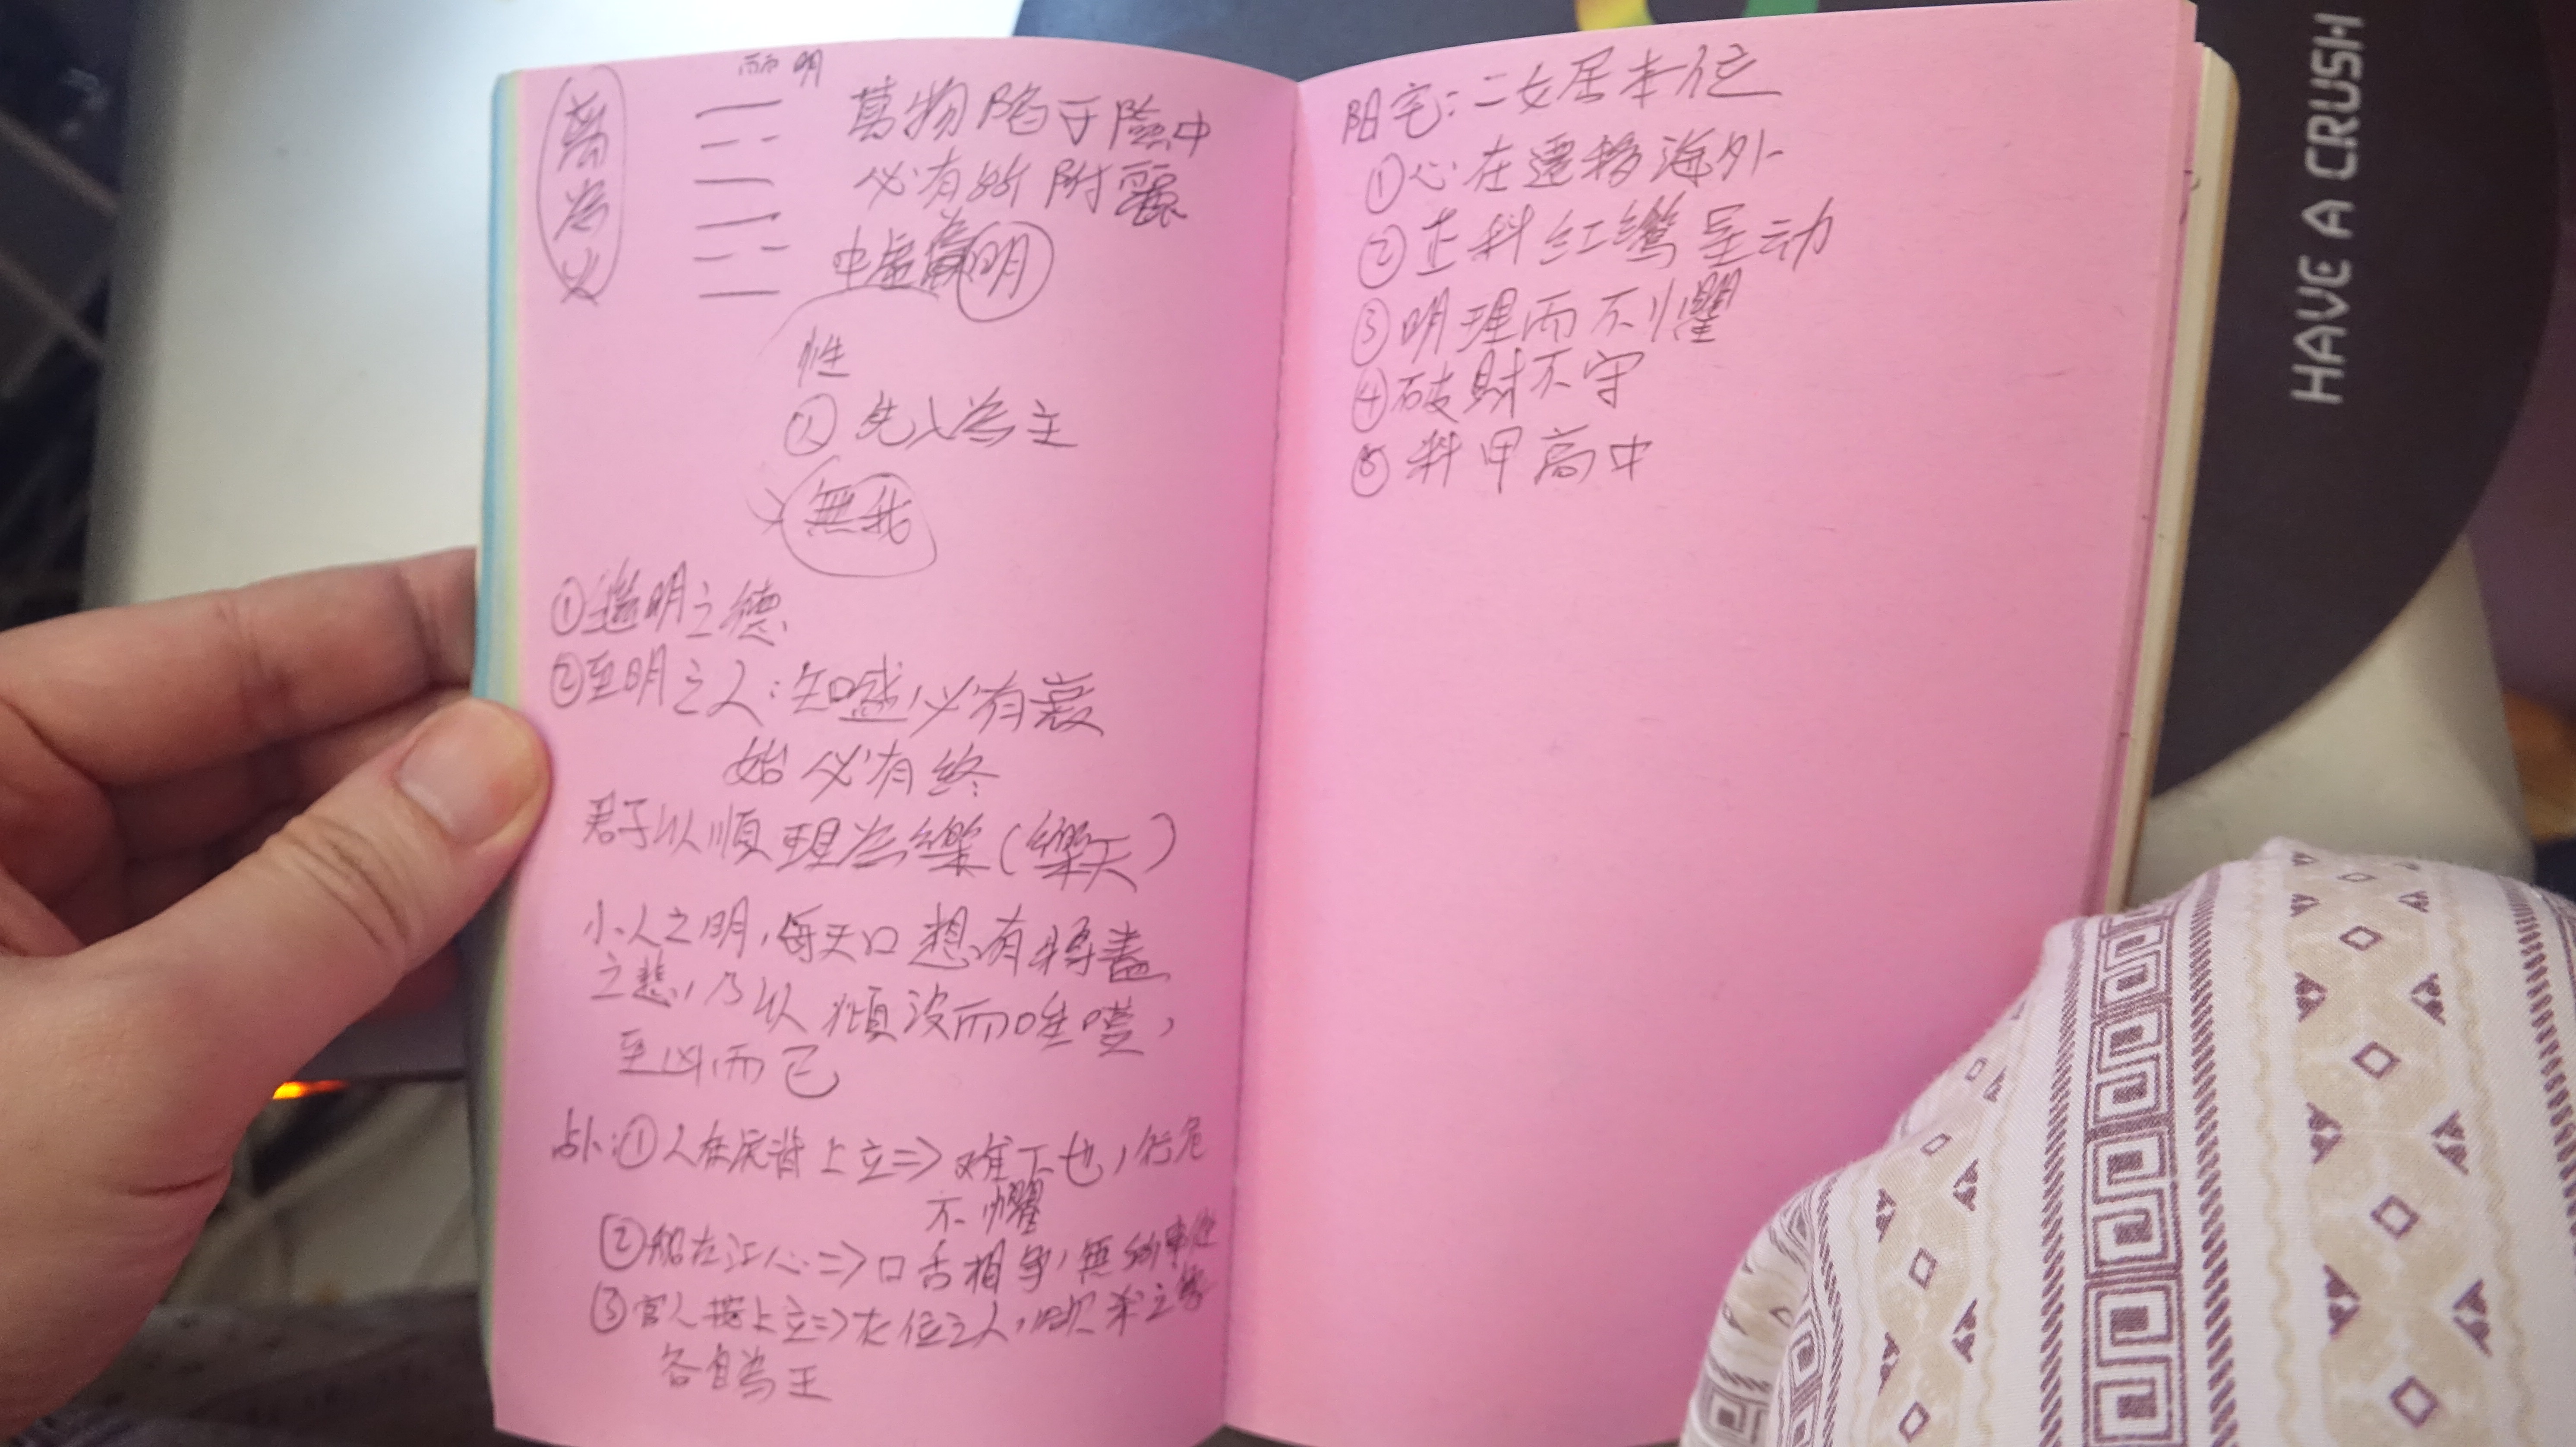 離為火
丽明
萬物陷于險中
必有所附麗
中虛為明
性
人 先入為主
無我
①繼明之德
②至明之人:知盛必有衰
始必有終
君子以順理為樂(樂天)
小人之明,每天口想有將盡
之悲,乃以傾沒而嗟,
至凶而已
占卜:①人在虎背上立⇒难下也,行危
不懼
②船在江心⇒口舌相争,無
③官人上立⇒在位之人,之
各自為王
阳宅:二女居本位
①心在遷移海外
②正料红鸞星动
③明理而不懼
④破財不守
⑤料甲高中
HAVE A CRUSH